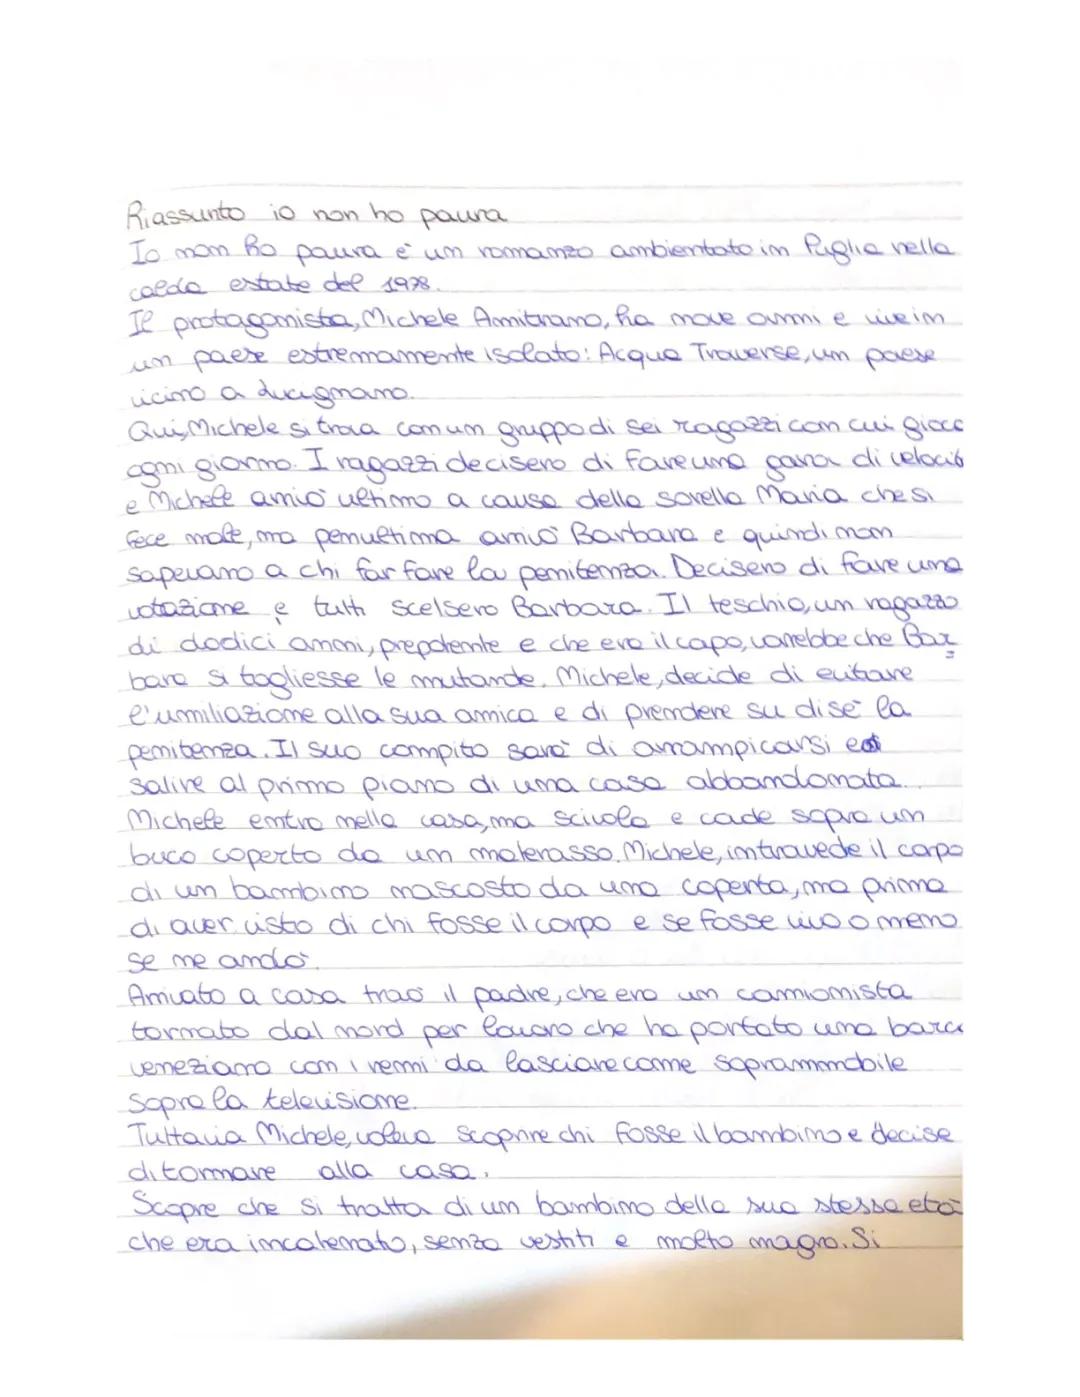 Riassunto io non ho paura
Io non ho paura è un romanzo ambientato in Puglia nella
calda estate del 1978.
Il protagonista, Michele Amitrano, ha nove anni e vive in
un paese estremamente isolato: Acqua Traverse, un paese
vicino a Lucignano.
Qui, Michele si trova con un gruppo di sei ragazzi con cui gioca
ogni giorno. I ragazzi decisero di fare una gara di velocità
e Michele arrivò ultimo a causa della sorella Maria che si
fece male, ma penultima arrivò Barbara e quindi non
sapevano a chi far fare la penitenza. Decisero di fare una
votazione e tutti scelsero Barbara. Il teschio, un ragazzo
di dodici anni, prepotente e che era il capo, vorrebbe che Bar
bara si togliesse le mutande. Michele, decide di evitare
l'umiliazione alla sua amica e di prendere su di sè la
penitenza. Il suo compito sarà di arrampicarsi e
salire al primo piano di una casa abbandonata.
Michele entra nella casa, ma scivola e cade sopra un
buco coperto da un materasso. Michele, intravede il corpo
di un bambino nascosto da una coperta, ma prima
di aver visto di chi fosse il corpo e se fosse vivo o meno
se ne andò.
Arrivato a casa trovò il padre, che era un camionista
tornato dal nord per lavoro che ha portato una barca
veneziana con i remi da lasciare come soprammobile
sopra la televisione.
Tuttavia Michele, voleva scoprire chi fosse il bambino e decise
di tornare alla casa.
Scopre che si tratta di un bambino della sua stessa età
che era incatenato, senza vestiti e molto magro. Si